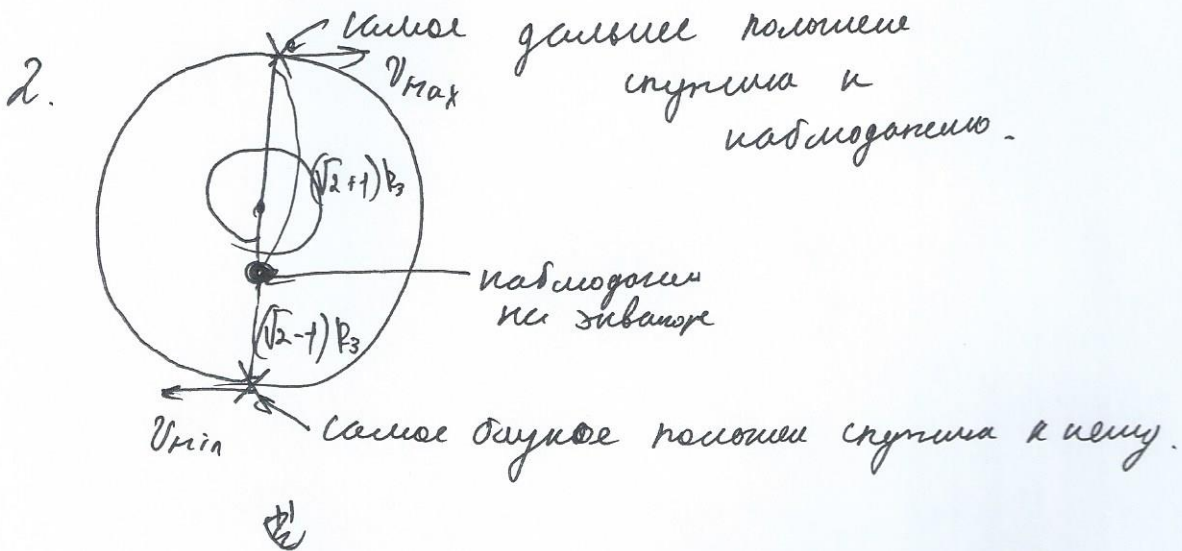 самое дальнее положение
2.
спутника к
наблюдателю.
υmax
(√2+1) R₃
наблюдатель
на экваторе
(√2-1) R₃
υmin
самое близкое положение спутника к нему.